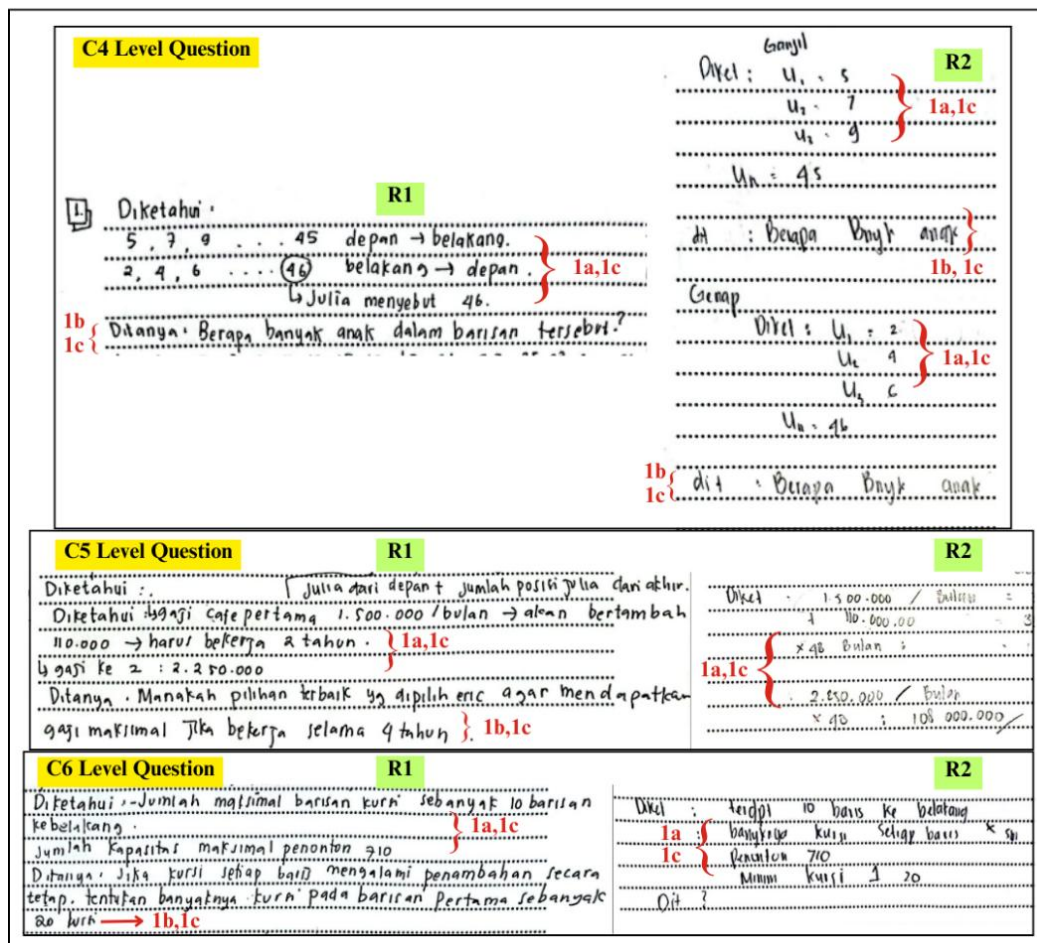 C4 Level Question
R1
1. Diketahui :
5, 7, 9 .... 45 depan → belakang.
2, 4, 6 .... 46 belakang → depan.
↳ Julia menyebut 46.
1a,1c
1b
1c
Ditanya : Berapa banyak anak dalam barisan tersebut.?
R2
Ganjil
Diket : U₁ : 5
U₂ : 7
U₃ : 9
1a,1c
Un = 45
dit : Berapa Bnyk anak
1b, 1c
Genap
Diket : U₁ = 2
U₂ 4
U₃ 6
1a,1c
Un = 46
1b
1c
dit : Berapa Bnyk anak
C5 Level Question
R1
Diketahui :. Julia dari depan + jumlah posisi Julia dari akhir.
Diketahui : gaji cafe pertama 1.500.000 /bulan → akan bertambah
110.000 → harus bekerja 2 tahun.
1a,1c
↳ gaji ke 2 : 2.250.000
Ditanya . Manakah pilihan terbaik yg dipilih eric agar mendapatkan
gaji maksimal Jika bekerja selama 4 tahun
1b,1c
R2
Diket 1.500.000 / Bulan =
+ 110.000.00 3
x 48 Bulan :
1a,1c
2.250.000 / Bulan
x 48 : 108 000.000/
C6 Level Question
R1
Diketahui :-Jumlah maksimal barisan kursi sebanyak 10 barisan
kebelakang.
1a,1c
Jumlah Kapasitas maksimal penonton 710
Ditanya. Jika kursi setiap baris mengalami penambahan secara
tetap. tentukan banyaknya kursi pada barisan Pertama sebanyak
20 kursi → 1b,1c
R2
Diket : terdpt 10 baris ke belakang
1a
1c
banyknya kursi setiap baris x
Penonton 710
kursi 1 20
Dit ?